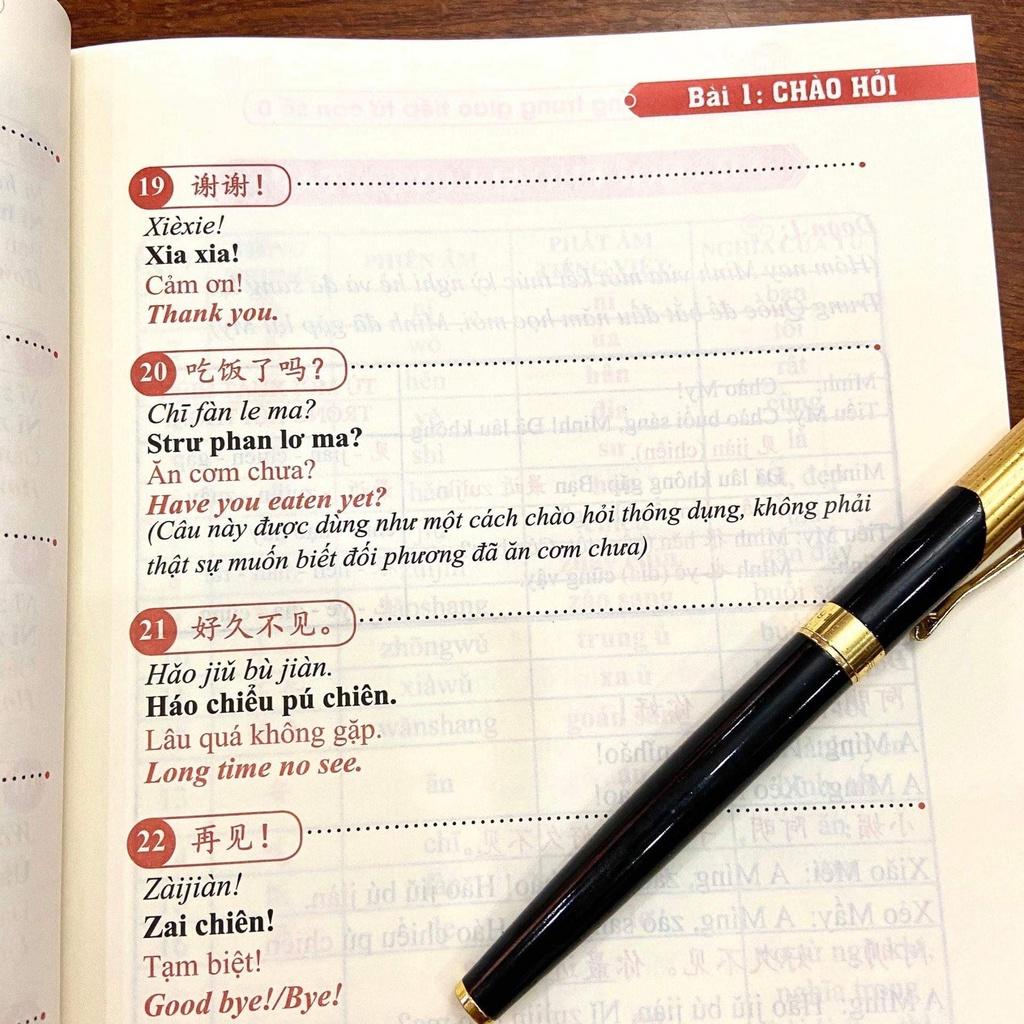 Bài 1: CHÀO HỎI
19 谢谢！
Xièxie!
Xia xia!
Cảm ơn!
Thank you.
20 吃饭了吗？
Chī fàn le ma?
Strư phan lơ ma?
Ăn cơm chưa?
Have you eaten yet?
(Câu này được dùng như một cách chào hỏi thông dụng, không phải
thật sự muốn biết đối phương đã ăn cơm chưa)
21 好久不见。
Hǎo jiǔ bù jiàn.
Háo chiểu pú chiên.
Lâu quá không gặp.
Long time no see.
22 再见！
Zàijiàn!
Zai chiên!
Tạm biệt!
Good bye!/Bye!